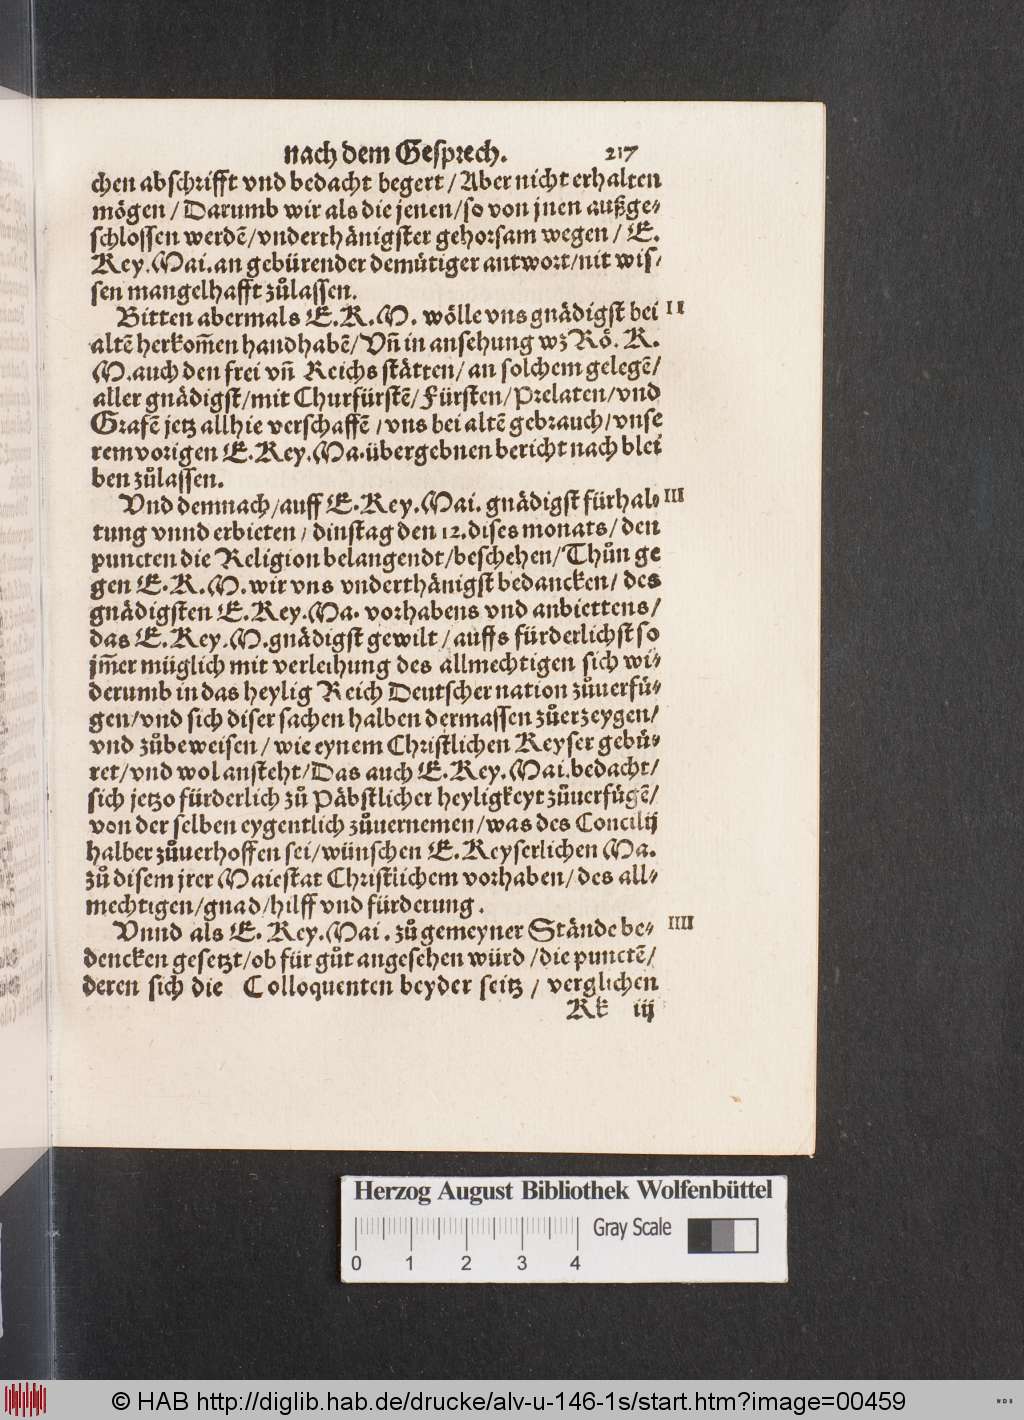 nach dem Gesprech. 217
chen abschrifft vnd bedacht begert / Aber nicht erhalten
mögen / Darumb wir als die jenen/so von jnen außge⸗
schlossen werdē/vnderthänigster gehorsam wegen / E.
Key. Mai. an gebürender demütiger antwort/nit wis⸗
sen mangelhafft zůlassen.
Bitten abermals E. K. M. wölle vns gnädigst bei II
altē herkom̄en handhabē/ Vn̄ in ansehung wz Rö. K.
M. auch den frei vn̄ Reichs stätten/ an solchem gelegē/
aller gnädigst/mit Churfürstē/ Fürsten/ Prelaten/vnd
Grafē jetz allhie verschaffē /vns bei altē gebrauch/vnse
rem vorigen E. Key. Ma. übergebnen bericht nach blei
ben zůlassen.
Vnd demnach/auff E. Key. Mai. gnädigst fürhal⸗ III
tung vnnd erbieten / dinstag den 12. dises monats/ den
puncten die Religion belangendt/beschehen/Thůn ge
gen E. K. M. wir vns vnderthänigst bedancken/ des
gnädigsten E. Key. Ma. vorhabens vnd anbiettens/
das E. Key. M. gnädigst gewilt / auffs fürderlichst so
jm̄er müglich mit verleihung des allmechtigen sich wi⸗
derumb in das heylig Reich Deutscher nation zůuerfü⸗
gen/vnd sich diser sachen halben dermassen zůerzeygen/
vnd zůbeweisen / wie eynem Christlichen Keyser gebü⸗
ret/vnd wol ansteht/Das auch E. Key. Mai. bedacht/
sich jetzo fürderlich zů Päbstlicher heyligkeyt zůuerfügē/
von der selben eygentlich zůuernemen/was des Concilij
halber zůuerhoffen sei/wünschen E. Keyserlichen Ma.
zů disem jrer Maiestat Christlichem vorhaben/ des all⸗
mechtigen/gnad/hilff vnd fürderung.
Vnnd als E. Key. Mai. zů gemeyner Stände be⸗ IIII
dencken gesetzt/ob für gůt angesehen würd /die punctē/
deren sich die Colloquenten beyder seitz / verglichen
Kk iij
Herzog August Bibliothek Wolfenbüttel
Gray Scale
0 1 2 3 4
© HAB http://diglib.hab.de/drucke/alv-u-146-1s/start.htm?image=00459